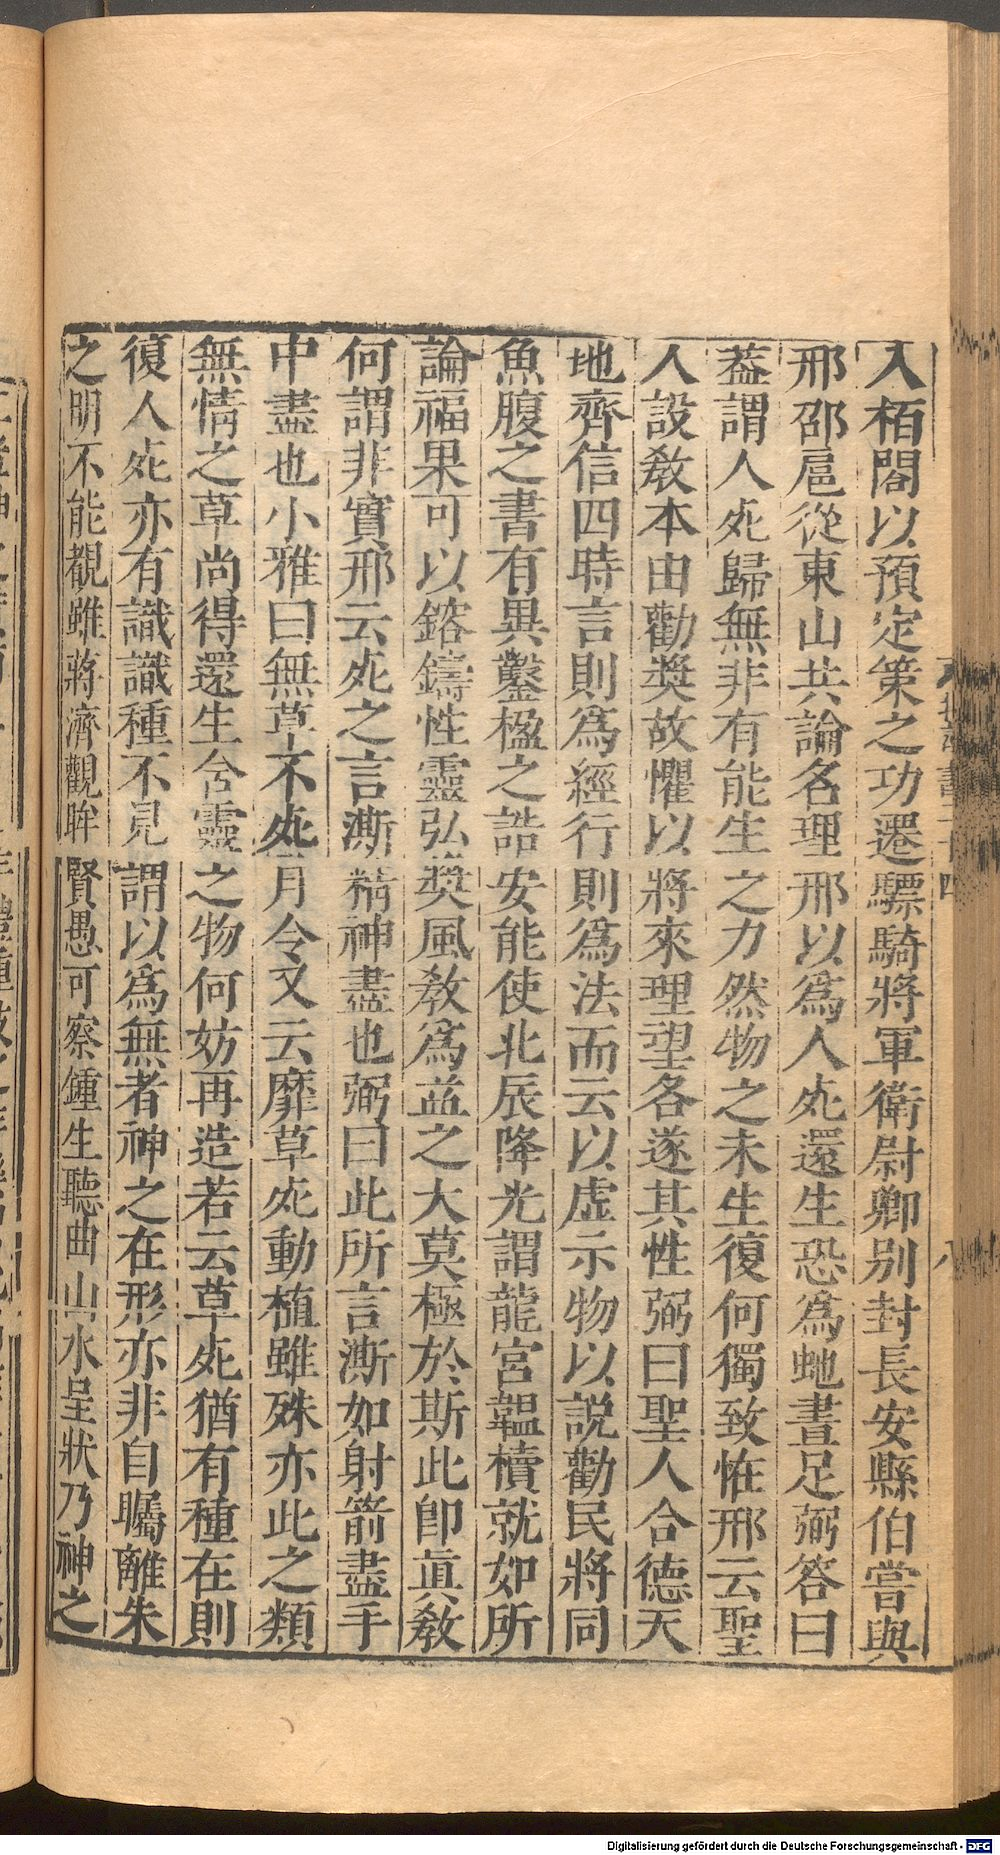 入栢閣以預定策之功遷驃騎將軍衛尉卿别封長安縣伯嘗與
邢邵扈從東山共論名理邢以為人𣦸還生恐為虵畫足弼答曰
葢謂人𣦸歸無非有能生之力然物之未生復何獨致恠邢云聖
人設敎本由勸奬故懼以將來理望各遂其性弼曰聖人合德天
地齊信四時言則為經行則為法而云以虛示物以説勸民將同
魚腹之書有異鑿楹之誥安能使北辰降光謂龍宮韞櫝就如所
論福果可以鎔鑄性靈弘奬風敎為益之大莫極於斯此卽眞敎
何謂非實邢云𣦸之言澌精神盡也弼曰此所言澌如射箭盡手
中盡也小雅曰無草不𣦸月令又云靡草𣦸動植雖殊亦此之類
無情之草尚得還生含靈之物何妨再造若云草𣦸猶有種在則
復人𣦸亦有識識種不見謂以為無者神之在形亦非自矚離朱
之明不能覩雖蔣濟觀眸賢愚可察鍾生聽曲山水呈狀乃神之
八
Digitalisierung gefördert durch die Deutsche Forschungsgemeinschaft - DFG